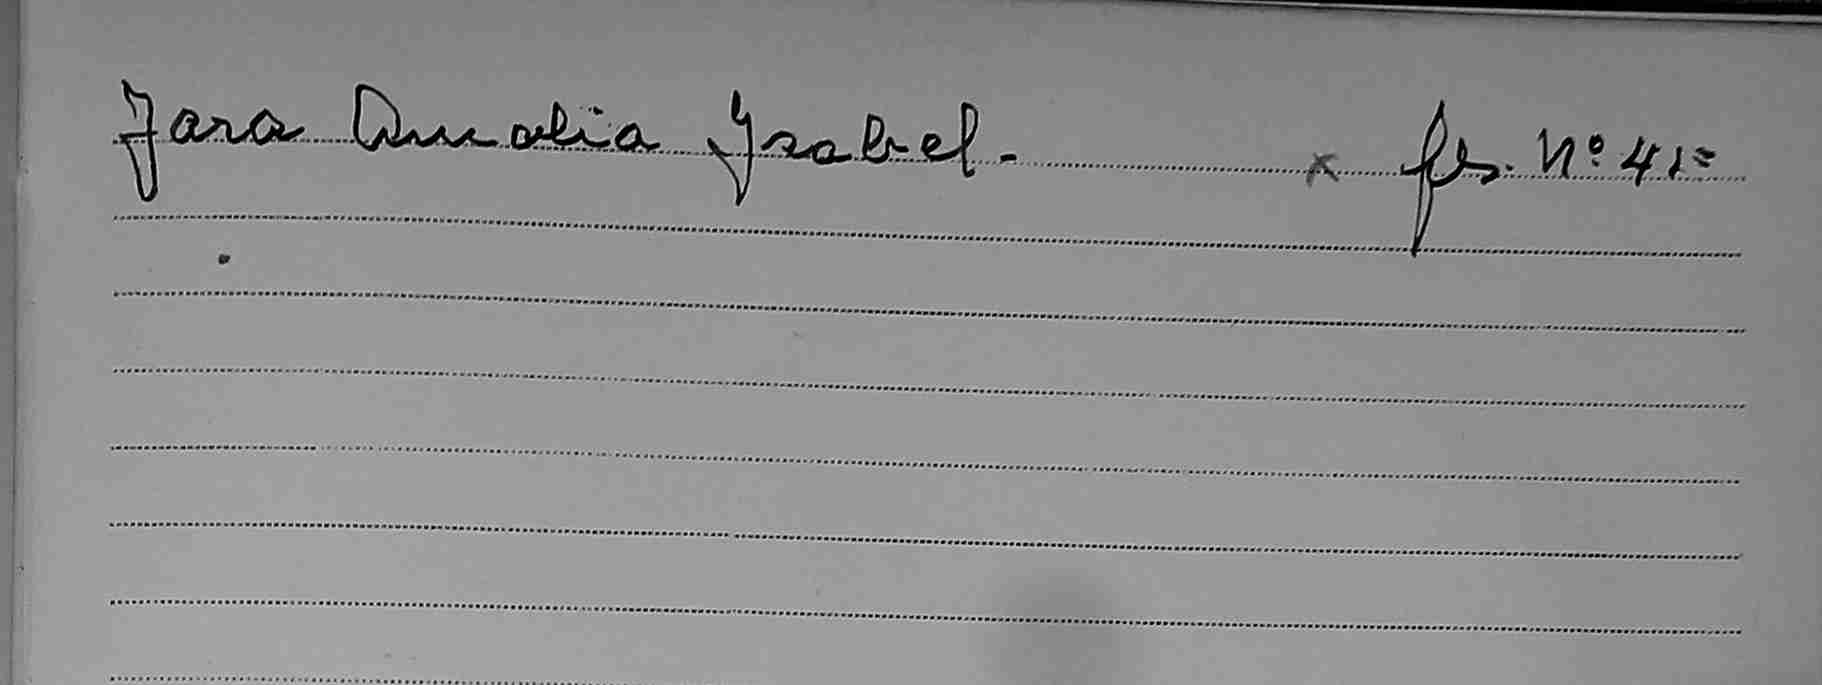 Jara Amalia Ysabel. x fs. Nº 41=